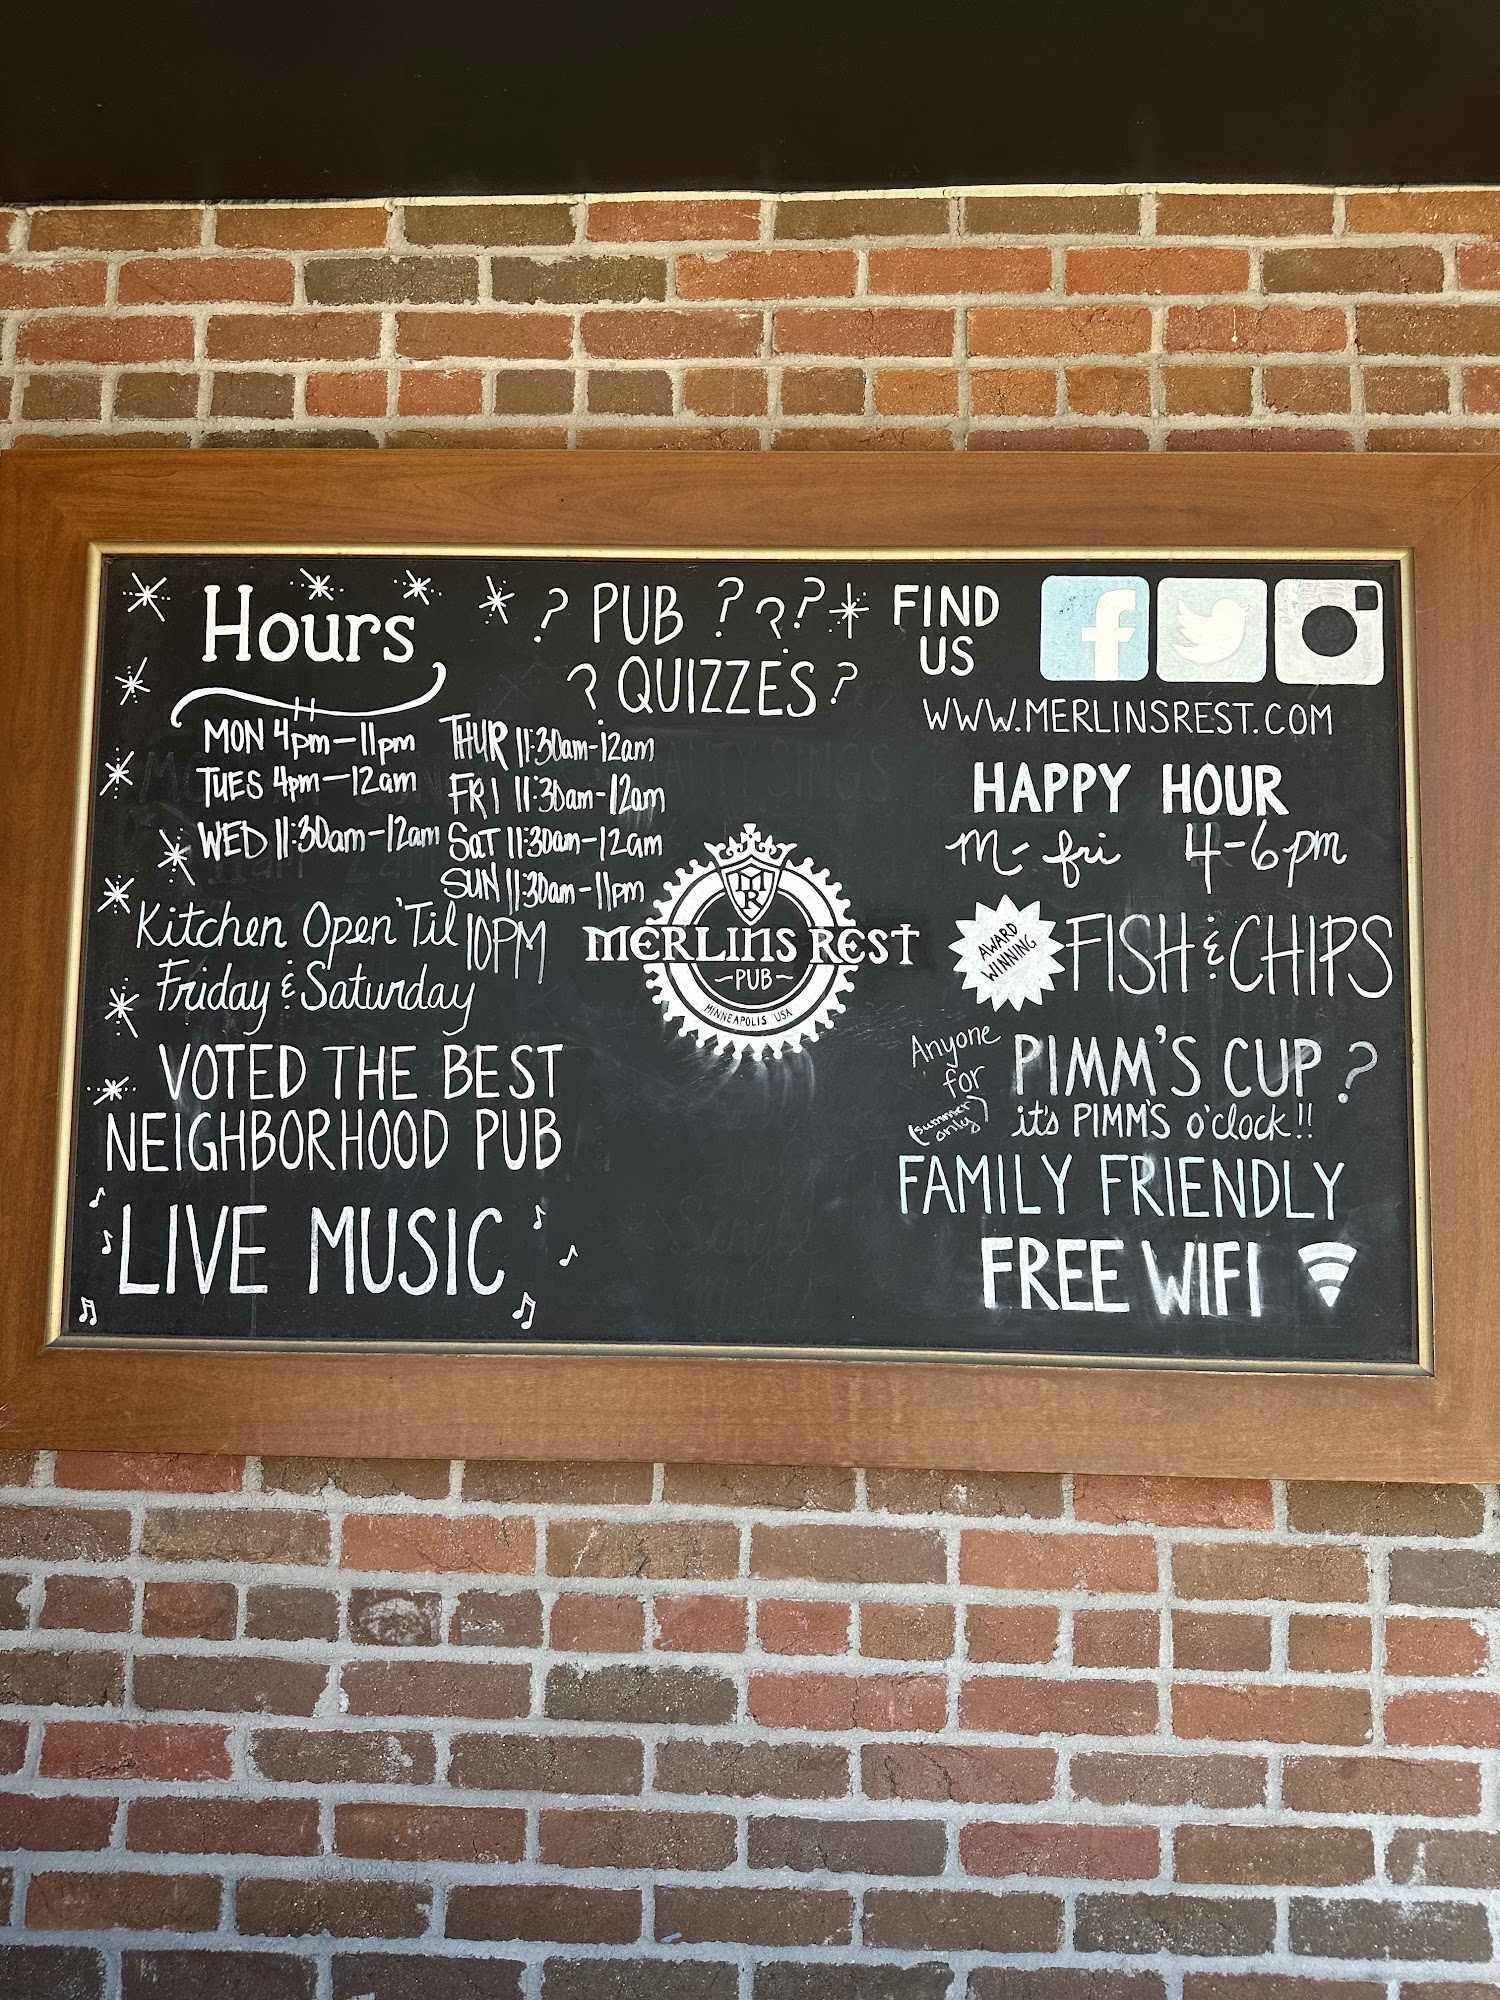 Hours
MON 4pm-11pm
TUES 4pm-12am
WED 11:30am-12am
THUR 11:30am-12am
FRI 11:30am-12am
SAT 11:30am-12am
SUN 11:30am-11pm
Kitchen Open 'Til 10PM
Friday & Saturday
VOTED THE BEST
NEIGHBORHOOD PUB
LIVE MUSIC
? PUB ? ? ?
? QUIZZES ?
MR
MERLINS REST
~PUB~
MINNEAPOLIS USA
FIND
US
f
WWW.MERLINSREST.COM
HAPPY HOUR
M-fri 4-6pm
AWARD
WINNING
FISH & CHIPS
Anyone
for
(summer
only)
PIMM'S CUP ?
it's PIMM'S o'clock!!
FAMILY FRIENDLY
FREE WIFI